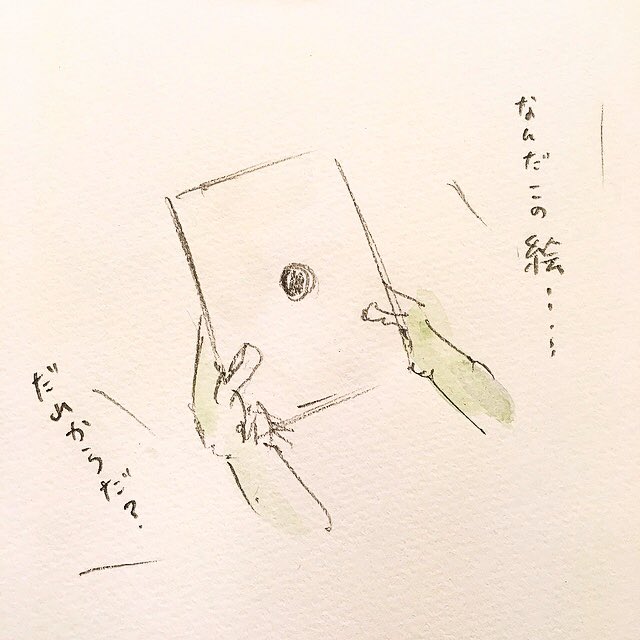 なんだこの絵・・・・
だれからだ?